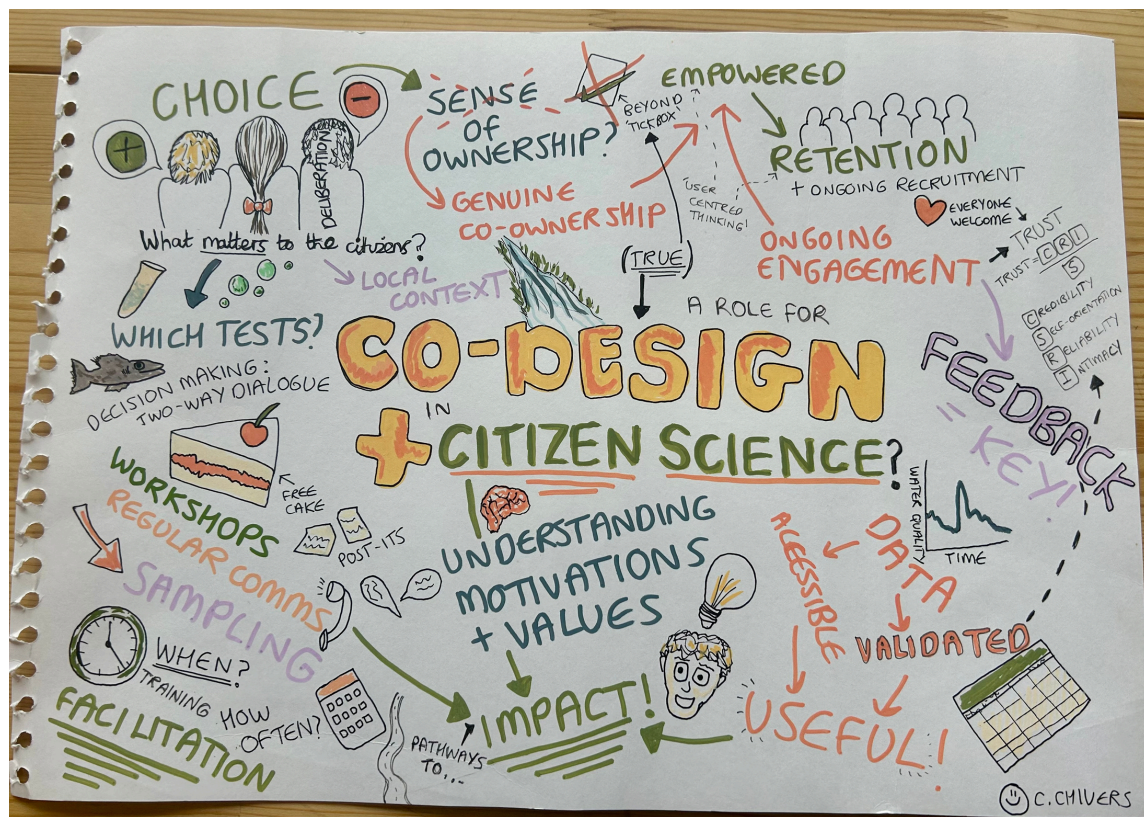 CHOICE
+
-
DELIBERATION
What matters to the citizens?
SENSE
OF
OWNERSHIP?
GENUINE
CO-OWNERSHIP
BEYOND
'TICKBOX'
EMPOWERED
RETENTION
+ ONGOING RECRUITMENT
EVERYONE
WELCOME
'USER
CENTRED
THINKING'
ONGOING
ENGAGEMENT
TRUST
TRUST = CRI
S
CREDIBILITY
SELF-ORIENTATION
RELIABILITY
INTIMACY
(TRUE)
LOCAL
CONTEXT
WHICH TESTS?
DECISION MAKING:
TWO-WAY DIALOGUE
A ROLE FOR
CO-DESIGN
IN
+ CITIZEN SCIENCE?
FEEDBACK
= KEY!
FREE
CAKE
WORKSHOPS
POST-ITS
REGULAR COMMS
SAMPLING
WHEN?
TRAINING
HOW
OFTEN?
FACILITATION
UNDERSTANDING
MOTIVATIONS
+ VALUES
PATHWAYS
TO...
IMPACT!
DATA
ACESSIBLE
VALIDATED
USEFUL!
WATER QUALITY
TIME
C.CHIVERS